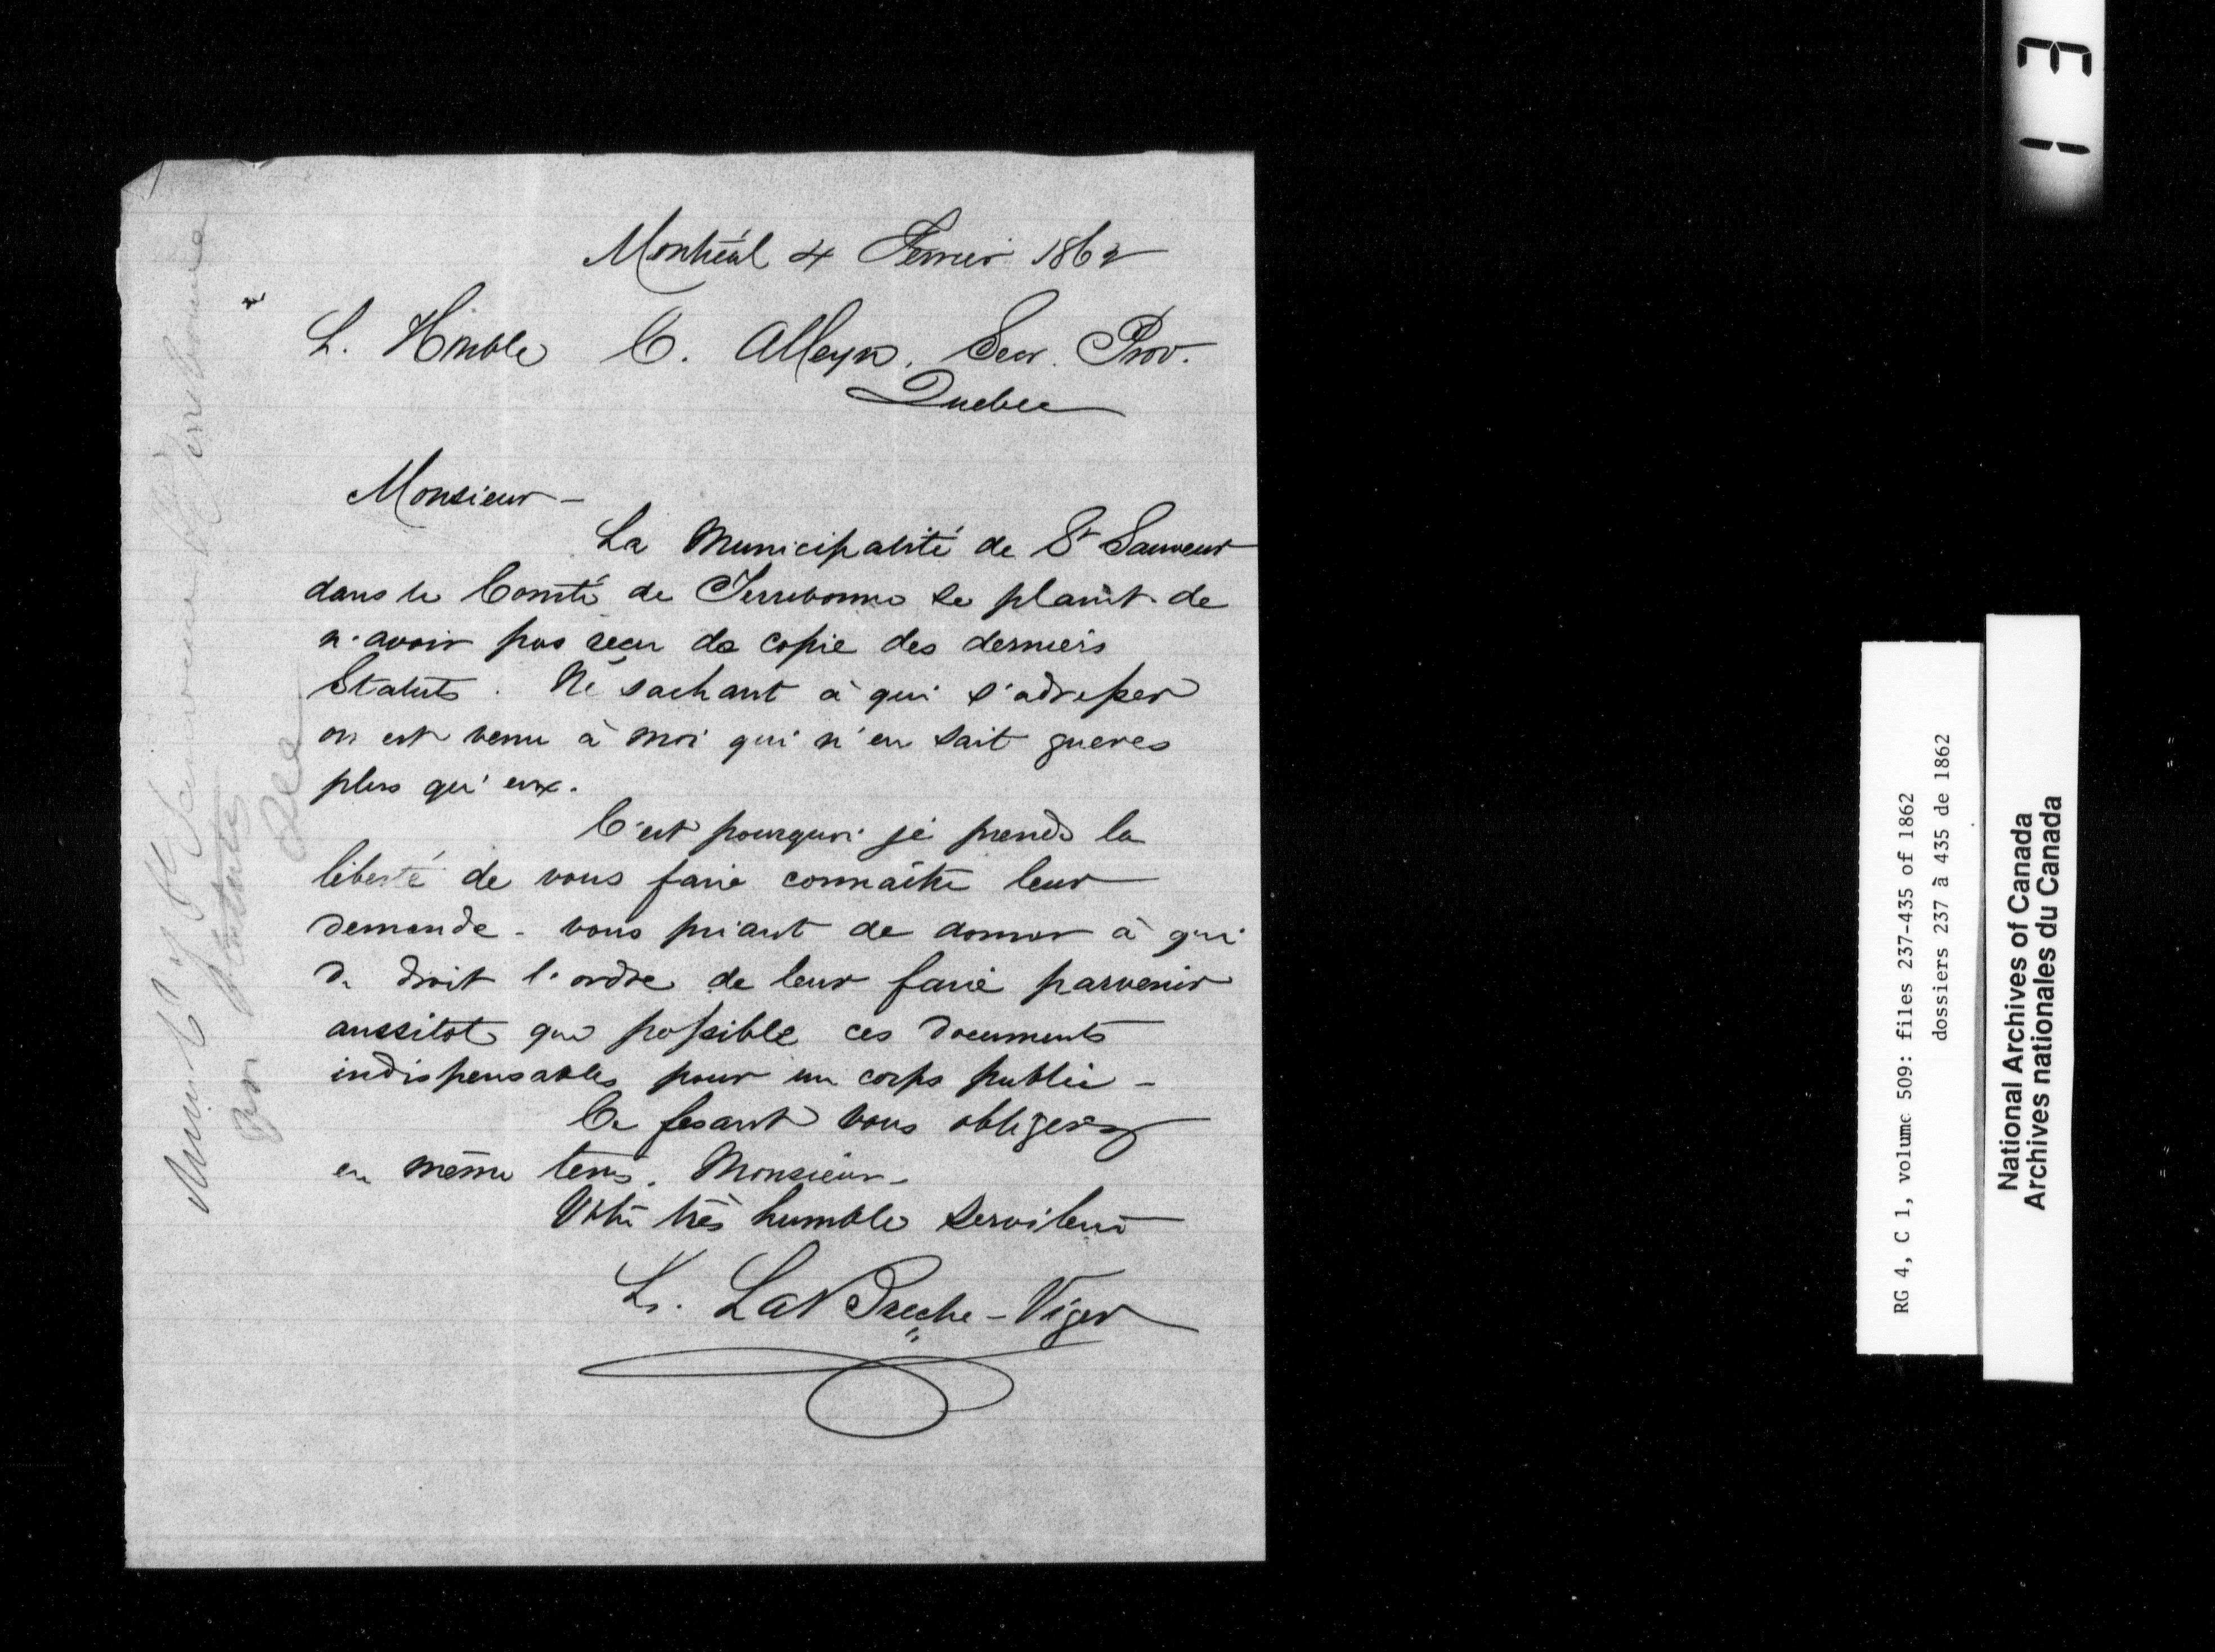 Montréal 4 Fevrier 1862
L. Honble C. Alleyn. Secr. Prov.
Quebec
Monsieur -
La Municipalité de St Sauveur
dans le Comté de Terrebonne se plaint de
n'avoir pas reçu de copie des derniers
Statuts. Ne sachant à qui s'adresser
on est venu à moi qui n'en sait gueres
plus qu'eux.
C'est pourquoi je prends la
liberté de vous faire connaître leur
demande - vous priant de donner à qui
de droit l'ordre de leur faire parvenir
aussitot que possible ces documents
indispensables pour un corps public -
Ce fesant vous obligerez
en même tems. Monsieur -
Votre très humble serviteur
Ls. Labrèche-Viger
Municty of St Sauveur Terrebonne
for Statutes
13
RG 4, C 1, volume 509: files 237-435 of 1862
dossiers 237 à 435 de 1862
National Archives of Canada
Archives nationales du Canada